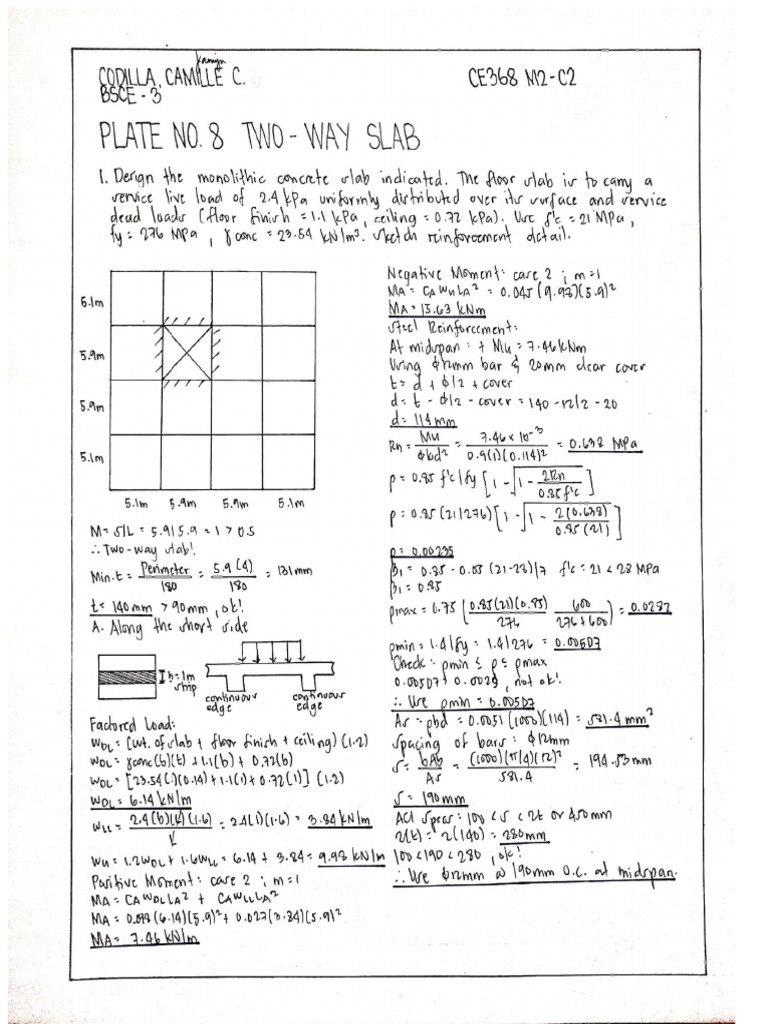 Jamijn
CODILLA, CAMILLE C.
CE368 M2-C2
BSCE - 3
PLATE NO. 8 TWO-WAY SLAB
1. Design the monolithic concrete slab indicated. The floor slab is to carry a
service live load of 2.4 kPa uniformly distributed over its surface and service
dead loads (floor finish = 1.1 kPa, ceiling = 0.72 kPa). Use f'c = 21 MPa,
fy = 276 MPa, γconc = 23.54 kN/m³. Sketch reinforcement detail.
5.1m
5.9m
5.9m
5.1m
5.1m 5.9m 5.9m 5.1m
M = S/L = 5.9/5.9 = 1 > 0.5
∴ Two-way slab!
Min. t = Perimeter/180 = 5.9(4)/180 = 131 mm
t = 140mm > 90mm, ok!
A. Along the short side
b=1m
strip
continuous
edge
continuous
edge
Factored Load:
WDL = (wt. of slab + floor finish + ceiling) (1.2)
WDL = γconc(b)(t) + 1.1(b) + 0.72(b)
WDL = [23.54(1)(0.14) + 1.1(1) + 0.72(1)] (1.2)
WDL = 6.14 kN/m
WLL = 2.4(b)(k)(1.6)/k = 2.4(1)(1.6) = 3.84 kN/m
Wu = 1.2WDL + 1.6WLL = 6.14 + 3.84 = 9.98 kN/m
Positive Moment: case 2 ; m=1
MA = CAWDLLA² + CAWLLLA²
MA = 0.018(6.14)(5.9)² + 0.027(3.84)(5.9)²
MA = 7.46 kN/m
Negative Moment: case 2 ; m=1
MA = CAWULA² = 0.045(9.98)(5.9)²
MA = 15.63 kNm
Steel Reinforcement:
At midspan: + Mu = 7.46 kNm
Using ϕ12mm bar & 20mm clear cover
t = d + ϕ/2 + cover
d = t - ϕ/2 - cover = 140 - 12/2 - 20
d = 114 mm
Rn = Mu/ϕbd² = 7.46 x 10⁻³/0.9(1)(0.114)² = 0.638 MPa
ρ = 0.85 f'c/fy [1 - √1 - 2Rn/0.85f'c]
ρ = 0.85 (21/276) [1 - √1 - 2(0.638)/0.85(21)]
ρ = 0.00235
β1 = 0.85 - 0.05 (21-28)/7 f'c = 21 < 28 MPa
β1 = 0.85
ρmax = 0.75 [0.85(21)(0.85)/276 600/276+600] = 0.0282
ρmin = 1.4/fy = 1.4/276 = 0.00507
Check: ρmin ≤ ρ ≤ ρmax
0.00507 > 0.0025, not ok!
∴ Use ρmin = 0.00507
As = ρbd = 0.0051 (1000)(114) = 581.4 mm²
Spacing of bars: ϕ12mm
s = bAb/As = (1000)(π/4)(12)²/581.4 = 194.53 mm
s = 190 mm
ACI Specs: 100 < s < 2t or 450mm
2(t) = 2(140) = 280mm
100 < 190 < 280, ok!
∴ Use ϕ12mm @ 190mm O.C. at midspan.